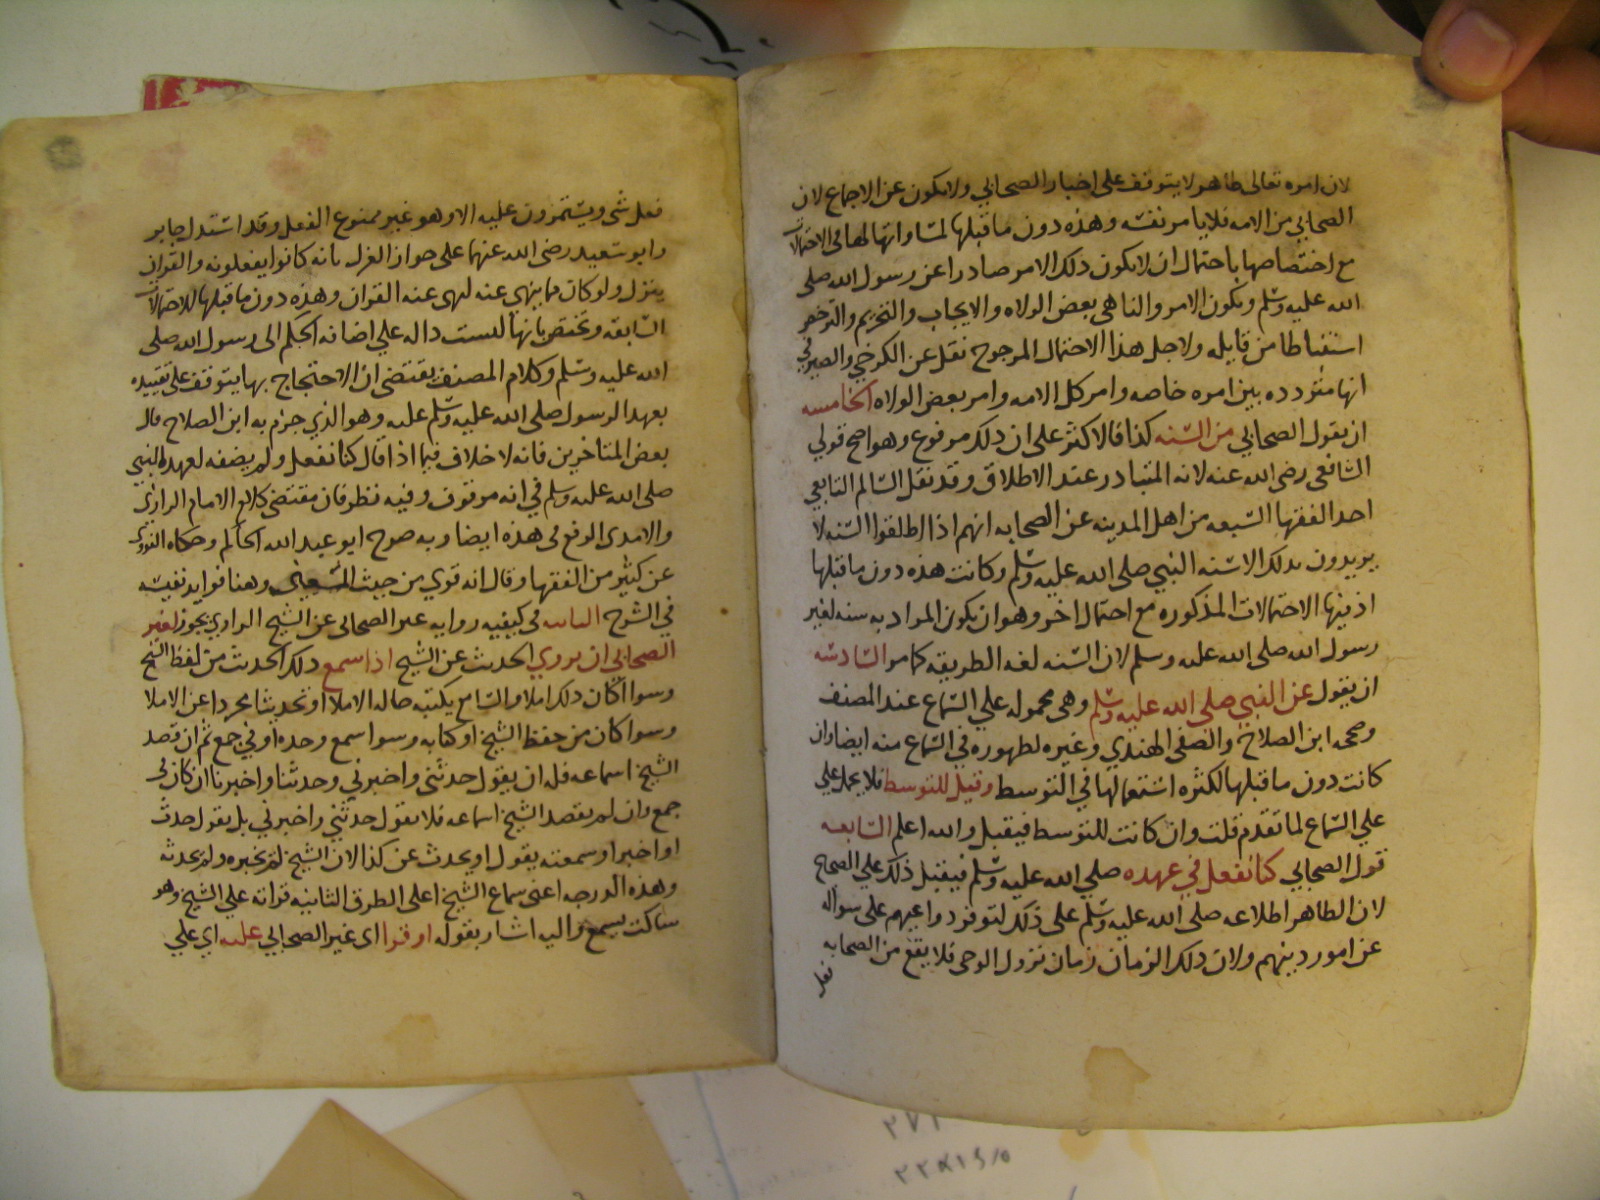 لان امره تعالى ظاهر لا يتوقف على اخبار الصحابي ولا يكون عن الاجماع لان
الصحابي من الامه فلا يامر نفسه وهذه دون ما قبلها لمساواتها لها في الاحتمالات
مع اختصاصها باحتمال ان لا يكون ذلك الامر صادرا عن رسول الله صلى
الله عليه وسلم ويكون الامر والناهى بعض الولاه والايجاب والتحريم والترخص
استنباطا من قايله ولاجل هذا الاحتمال المرجوح نقل عن الكرخي والصيرفي
انها مترددة بين امره خاصه وامر كل الامه وامر بعض الولاه الخامسه
ان يقول الصحابي من السنه كذا فالاكثر على ان ذلك مرفوع وهو اصح قولي
الشافعى رضى الله عنه لانه المتبادر عند الاطلاق وقد نقل السالم التابعي
احد الفقها السبعه من اهل المدينه عن الصحابه انهم اذا اطلقوا السنه لا
يريدون بذلك الا سنه النبي صلى الله عليه وسلم وكانت هذه دون ما قبلها
اذ فيها الاحتمالات المذكوره مع احتمال اخر وهو ان يكون المراد به سنه لغير
رسول الله صلى الله عليه وسلم لان السنه لغه الطريقه كما مر السادسه
ان يقول عن النبي صلى الله عليه وسلم وهى محموله علي السماع عند المصنف
وصححه ابن الصلاح والصفى الهندي وغيره لظهوره في السماع منه ايضا وان
كانت دون ما قبلها لكثره استعمالها في التوسط وقيل للتوسط فلا يحمل علي
علي السماع لما تقدم قلت وان كانت للتوسط فيقبل والله اعلم السابعه
قول الصحابي كنا نفعل في عهده صلي الله عليه وسلم فيقبل ذلك علي الصحاح
لان الظاهر اطلاعه صلى الله عليه وسلم على ذلك لتوفر دواعيهم على سواله
عن امور دينهم ولان ذلك الزمان زمان نزول الوحى فلا يقع من الصحابه
فعل
فعل شى ويستمرون عليه الا وهو غير ممنوع الفعل وقد استدل جابر
وابو سعيد رضى الله عنهما على جواز العزل بانه كانوا يفعلونه والقران
ينزل ولو كان مما ينهى عنه لنهى عنه القران وهذه دون ما قبلها للاحتمالات
السابقه وتختص بانها ليست داله علي اضافه الحكم الى رسول الله صلى
الله عليه وسلم وكلام المصنف يقتضى ان الاحتجاج بها يتوقف على تقييده
بعهد الرسول صلى الله عليه وسلم عليه وهو الذي جزم به ابن الصلاح قال
بعض المتاخرين فانه لا خلاف فيما اذا قال كنا نفعل ولم يضفه لعهده النبي
صلى الله عليه وسلم في انه موقوف وفيه نظر فان مقتضى كلام الامام الرازى
والامدى الرفع فى هذه ايضا وبه صرح ابو عبد الله الحاكم وحكاه النووى
عن كثير من الفقها وقال انه قوي من حيث المعنى وهنا فوايد نفيسه
في الشرح الثامنه فى كيفيه روايه غير الصحابى عن الشيخ الراوي يجوز لغير
الصحابي ان يروي الحديث عن الشيخ اذا سمع ذلك الحديث من لفظ الشيخ
وسوا اكان ذلك املا والسامع يكتبه حاله الاملا او تحديثا مجردا عن الاملا
وسوا كان من حفظ الشيخ او كتابه وسوا سمع وحده او في جمع ثم ان قصد
الشيخ اسماعه فله ان يقول حدثنى واخبرني وحدثنا واخبرنا ان كان فى
جمع وان لم يقصد الشيخ اسماعه فلا يقول حدثني واخبرني بل يقول حدث
او اخبر او سمعته يقول او يحدث عن كذا لان الشيخ لم يخبره ولم يحدثه
وهذه الدرجه اعنى سماع الشيخ اعلى الطرق الثانيه قراته علي الشيخ وهو
ساكت يسمع واليه اشار بقوله او قرا اى غير الصحابي عليه اي علي